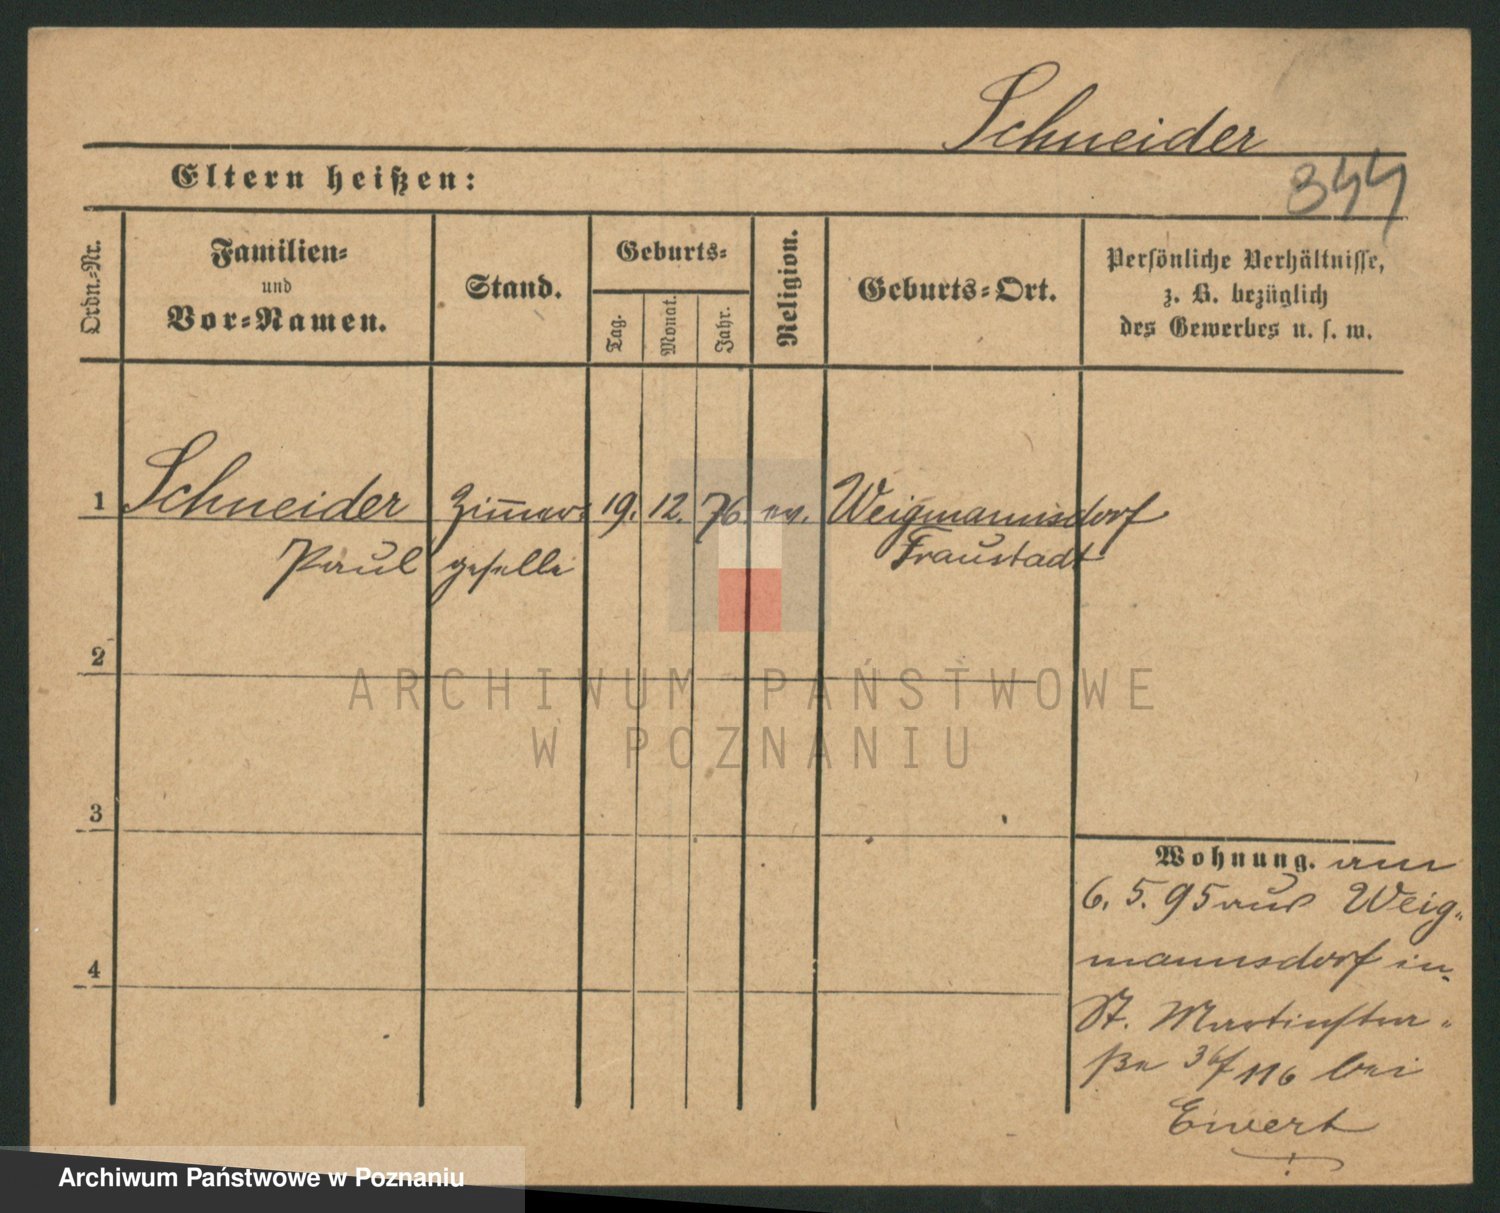 Schneider
Eltern heißen:
344
Ordn.-Nr.
Familien-
und
Vor-Namen.
Stand.
Geburts-
Tag.
Monat.
Jahr.
Religion.
Geburts-Ort.
Persönliche Verhältnisse,
z. B. bezüglich
des Gewerbes u. s. w.
1 Schneider Zimmer- 19. 12. 76. ev. Weigmannsdorf
Paul geselle Fraustadt
2
3
4
Wohnung. am
6. 5. 95 aus Weig-
mannsdorf in
St. Martinstra-
ße 36/116 bei
Ewert
ARCHIWUM PAŃSTWOWE
W POZNANIU
Archiwum Państwowe w Poznaniu